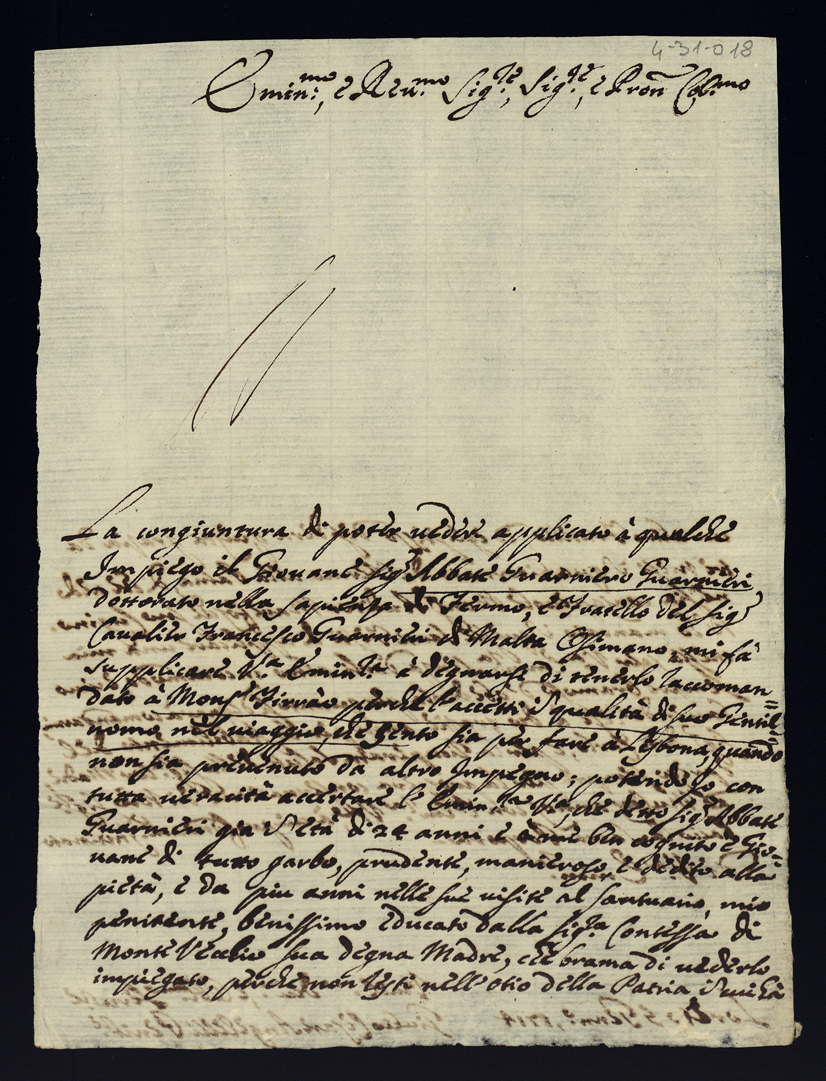 4-31-018
Emin.mo, e Reu.mo Sig.re, Sig.re, e Pron Col.mo
La congiuntura di poter uedere applicato à qualche
Impiego il Giouane Sig.r Abbate Guarniero Guarnieri
dottorato nella Sapienza di Fermo, e Fratello del Sig.r
Caualier Francesco Guarnieri di Malta Osimano, mi fà
supplicare V.a Emin.za à degnarsi di tenerlo raccoman=
dato à Mons.r Firrao perche l'accetti i qualità di suo Gentil=
uomo nel uiaggio, che sento sia per fare à Lisbona, quando
non sia preuenuto da altro Impegno; potendo io con
tutta ueracità accertare l'Emin.za V.a, che detto Sig.r Abbate
Guarnieri gia d'età di 24 anni è à me ben cognito e Gio=
uane di tutto garbo, prudente, manieroso, e dedito alla
pietà, e da piu anni nelle sue uisite al santuario, mio
penitente, benissimo educato dalla Sig.ra Contessa di
Monte Vecchio sua degna Madre, che brama di uederlo
impiegato, perche non resti nell'otio della Patria